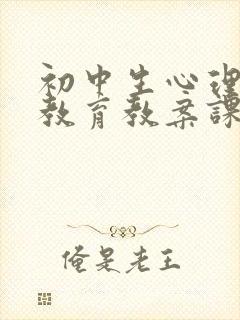 初中生心理
教育教案课
俺是老王